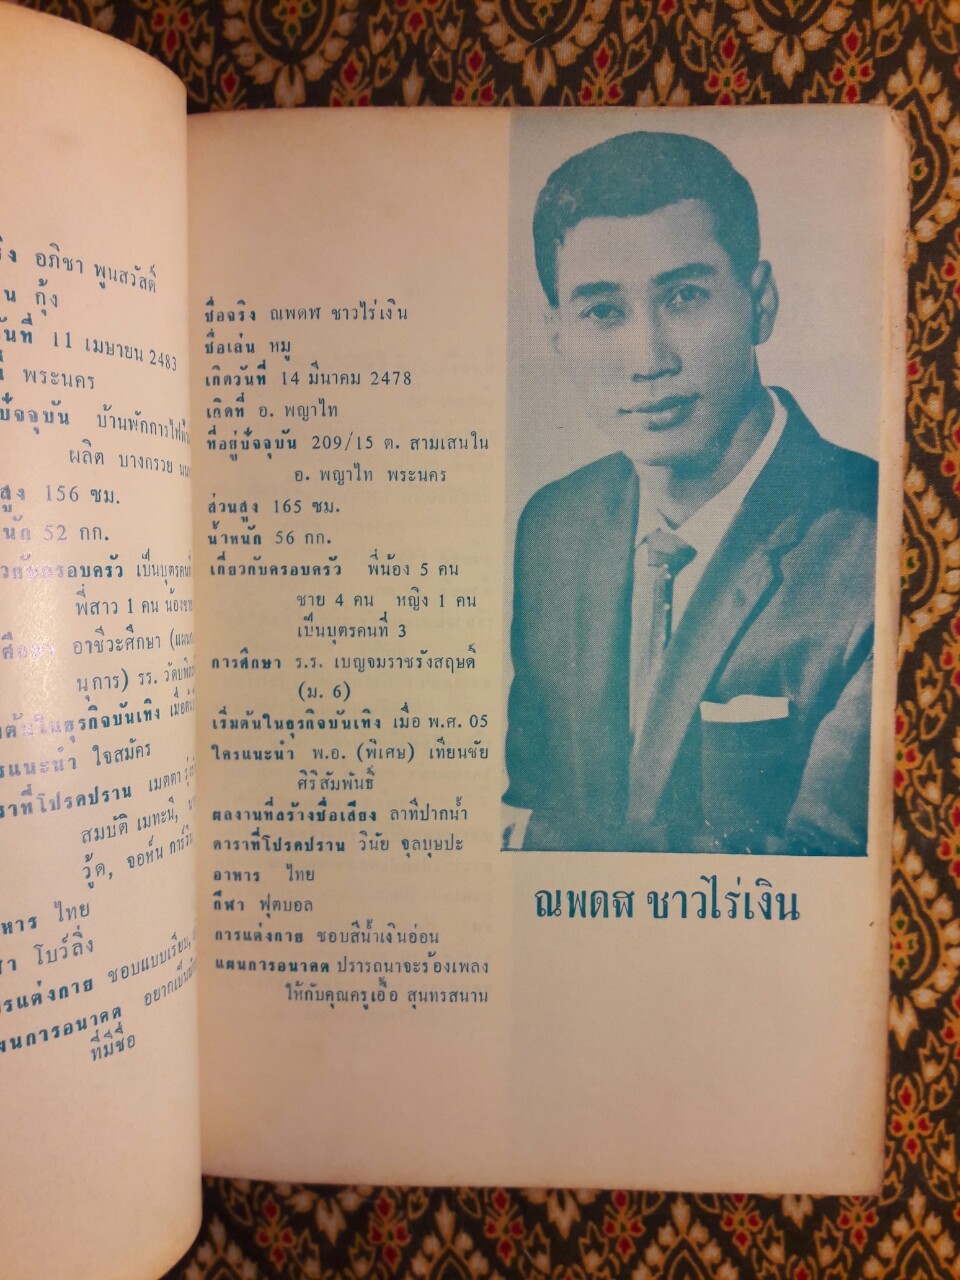 อภิชา พูนสวัสดิ์
กุ้ง
วันที่ 11 เมษายน 2483
พระนคร
ปัจจุบัน บ้านพักการไฟฟ้า
ผลิต บางกรวย
สูง 156 ซม.
นัก 52 กก.
ครอบครัว เป็นบุตรคนที่
พี่สาว 1 คน
อาชีวะศึกษา
นุการ) รร.
ต้นในธุรกิจบันเทิง
แนะนำ ใจสมัคร
ราที่โปรดปราน เมตตา
สมบัติ เมทะนี,
วู้ด, จอห์น
หาร ไทย
โบว์ลิ่ง
แต่งกาย ชอบแบบเรียบ
แผนการอนาคต
ที่มีชื่อ
ชื่อจริง ณพดฬ ชาวไร่เงิน
ชื่อเล่น หมู
เกิดวันที่ 14 มีนาคม 2478
เกิดที่ อ. พญาไท
ที่อยู่ปัจจุบัน 209/15 ต. สามเสนใน
อ. พญาไท พระนคร
ส่วนสูง 165 ซม.
น้ำหนัก 56 กก.
เกี่ยวกับครอบครัว พี่น้อง 5 คน
ชาย 4 คน หญิง 1 คน
เป็นบุตรคนที่ 3
การศึกษา ร.ร. เบญจมราชรังสฤษดิ์
(ม. 6)
เริ่มต้นในธุรกิจบันเทิง เมื่อ พ.ศ. 05
ใครแนะนำ พ.อ. (พิเศษ) เทียนชัย
ศิริสัมพันธ์
ผลงานที่สร้างชื่อเสียง ลาทีปากน้ำ
ดาราที่โปรดปราน วินัย จุลบุษปะ
อาหาร ไทย
กีฬา ฟุตบอล
การแต่งกาย ชอบสีน้ำเงินอ่อน
แผนการอนาคต ปรารถนาจะร้องเพลง
ให้กับคุณครูเอื้อ สุนทรสนาน
ณพดฬ ชาวไร่เงิน